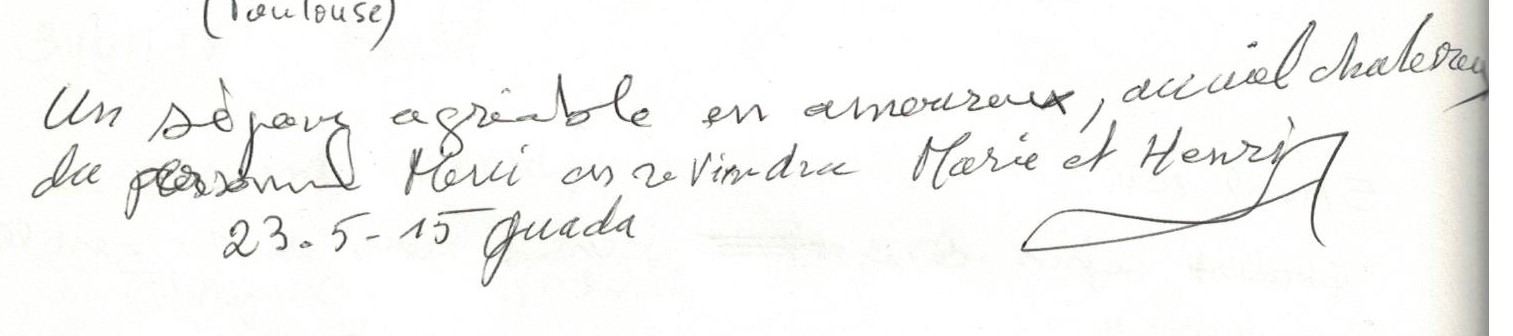 (Toulouse)
Un séjour agréable en amoureux, accueil chaleureux
du personnel Merci on reviendra Marie et Henri
23.5-15 Guada